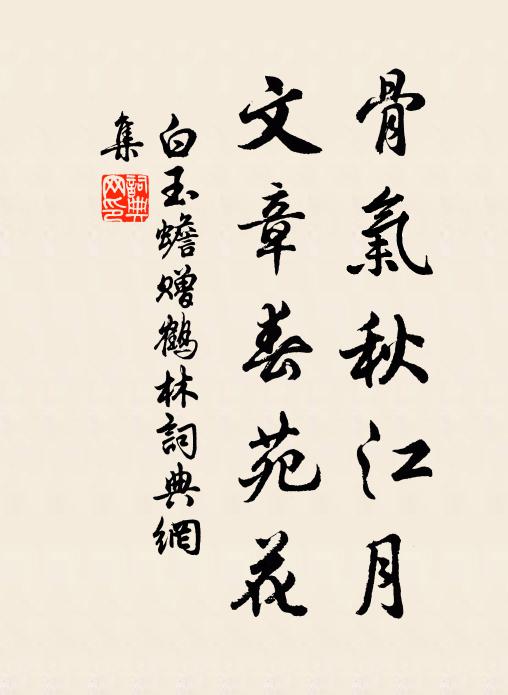 骨氣秋江月
文章春苑花
白玉蟾贈鶴林詞典網
集
詞典
网印